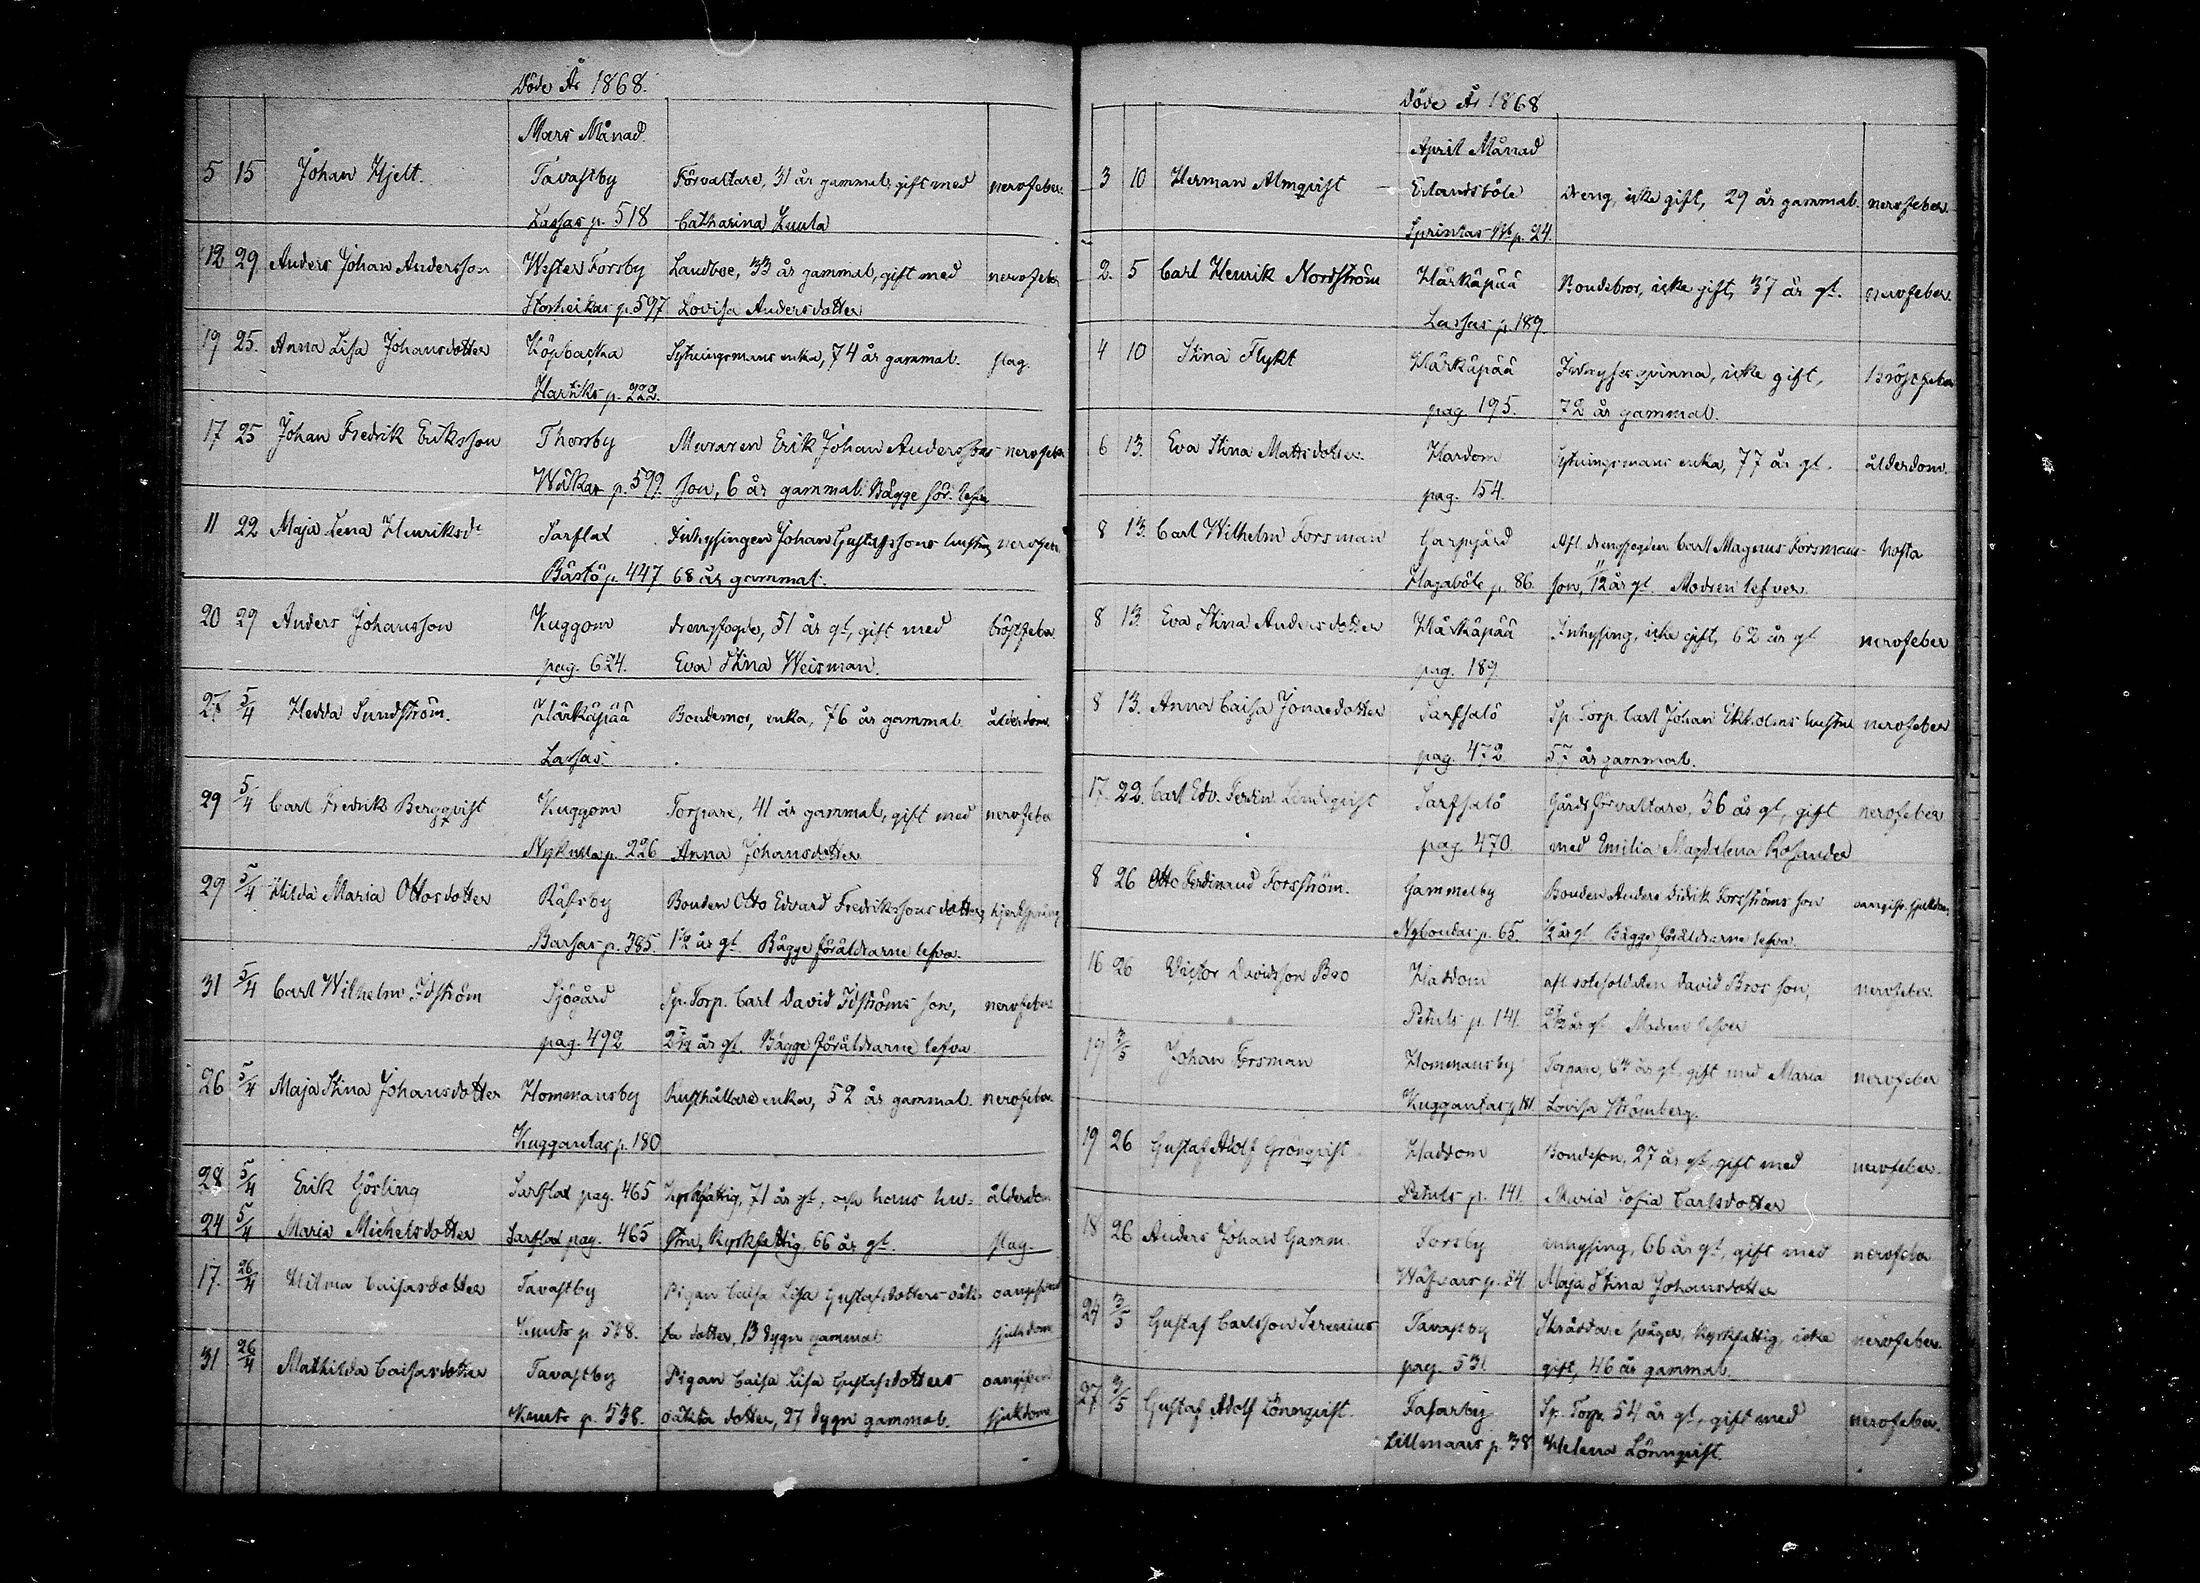 Döde År 1868.
Mars Månad.
5 15 Johan Hjelt. Tavastby Förvaltare, 31 år gammal, gift med nervfeber.
Lassas p. 518 Catharina Zuula
12 29 Anders Johan Andersson Wester Forsby Landboe, 33 år gammal, gift med nervfeber
Storheikas p. 597 Lovisa Andersdotter
19 25. Anna Lisa Johansdotter Köpbacka Sytningsmans enka, 74 år gammal. slag.
Hartiks p. 222.
17 25 Johan Fredrik Eriksson Thorsby Muraren Erik Johan Anderssons nervfeber
Wäkar p. 599. son, 6 år gammal. Bägge förä. lefva
11 22 Maja Lena Henriksdr Sarflax Inhysingen Johan Gustafssons hustru nervfeber
Bästö p. 447 68 år gammal.
20 29 Anders Johansson Kuggom drengfogde, 51 år gl, gift med bröstfeber
pag. 624. Eva Stina Weisman.
27 5/4 Hedda Sundström. Härkäpää Bondemor, enka, 76 år gammal. ålderdom.
Lassas
29 5/4 Carl Fredrik Bergqvist Kuggom Torpare, 41 år gammal, gift med nervfeber
Nykulla p. 226 Anna Johansdotter
29 5/4 Hilda Maria Ottosdotter Räfsby Bonden Otto Edvard Fredrikssons dotter,
Barsas p. 385. 1 1/2 år gl. Bägge föräldrarne lefva.
31 5/4 Carl Wilhelm Idström Sjögård Sp. Torp. Carl David Idströms son, nervfeber
pag. 492 år gl. Bägge föräldrarne lefva
26 5/4 Maja Stina Johansdotter Hommansby Rusthållare enka, 52 år gammal. nervfeber.
Kuggantas p. 180
28 5/4 Erik Görling Sarflax pag. 465 Kyrkfattig, 71 år gl, och hans hu- ålderdom
24 5/4 Maria Michelsdotter Sarflax pag. 465 stru, Kyrkfattig, 66 år gl. slag.
17. 26/4 Hilma Caisasdotter Tavastby Pigan Caisa Lisa Gustafsdotters oäk- oangifven
Knuts p. 538. ta dotter, 13 dygn gammal sjukdom
31 26/4 Mathilda Caisasdotter Tavastby Pigan Caisa Lisa Gustafsdotters oangifven
Knuts p. 538. oäkta dotter, 27 dygn gammal. sjukdom
Döde År 1868
April Månad
3 10 Herman Almqvist Erlandsböle dreng, icke gift, 29 år gammal. nervfeber.
Sprintas p. 24.
2. 5 Carl Henrik Nordström Härkäpää Bondebror, icke gift, 37 år gl. nervfeber.
Lassas p. 189.
4 10 Stina Flykt Härkäpää Inhyses qvinna, icke gift, Bröstfeber
pag. 195. 72 år gammal.
6 13. Eva Stina Mattsdotter. Hardom Sytningsmans enka, 77 år gl. ålderdom.
pag. 154.
8 13. Carl Wilhelm Forsman Garpgård Afl. drengfogden Carl Magnus Forsmans hosta
Hagaböle p. 86. son, 12 år gl. Modren lefver.
8 13. Eva Stina Andersdotter Härkäpää Inhysing, icke gift, 62 år gl nervfeber
pag. 189
8 13. Anna Caisa Jonasdotter Sarfsalö Sp. Torp. Carl Johan Ekholms hustru nervfeber
pag. 472 57 år gammal.
17. 22. Carl Edv. Ferdin. Lindeqvist Sarfsalö Gårds Förvaltare, 36 år gl, gift nervfeber
pag. 470. med Emilia Magdalena Rosander
8 26 Otto Ferdinand Forsström. Gammelby Bonden Anders Didrik Forsströms son oangifv. sjukdom
Nybondas p. 65. 1/2 år gl Bägge föräldrarne lefva.
16 26 Victor Davidsson Bro Haddom afl. rotesoldaten David Bros son, nervfeber.
Petuls p. 141. år gl Modren lefver
19 3/5 Johan Forsman Hommansby Torpare, år gl, gift med Maria nervfeber
Kuggantas p. 181 Lovisa Strömberg.
19 26 Gustaf Adolf Grönqvist Haddom Bondeson, 27 år gl, gift med nervfeber.
Petuls p. 141. Maria Sofia Carlsdotter
18 26 Anders Johan Gamm. Forsby inhysing, 66 år gl, gift med nervfeber
p. 24. Maja Stina Johansdotter
24 3/5 Gustaf Carlsson Serenius Tavastby Skräddare svåger, Kyrkfattig, icke nervfeber.
pag. 531 gift, 46 år gammal.
27 3/5 Gustaf Adolf Lönnqvist. Fasarby Sp. Torp. 54 år gl, gift med nervfeber.
Lillmans p. 38 Helena Lönnqvist.